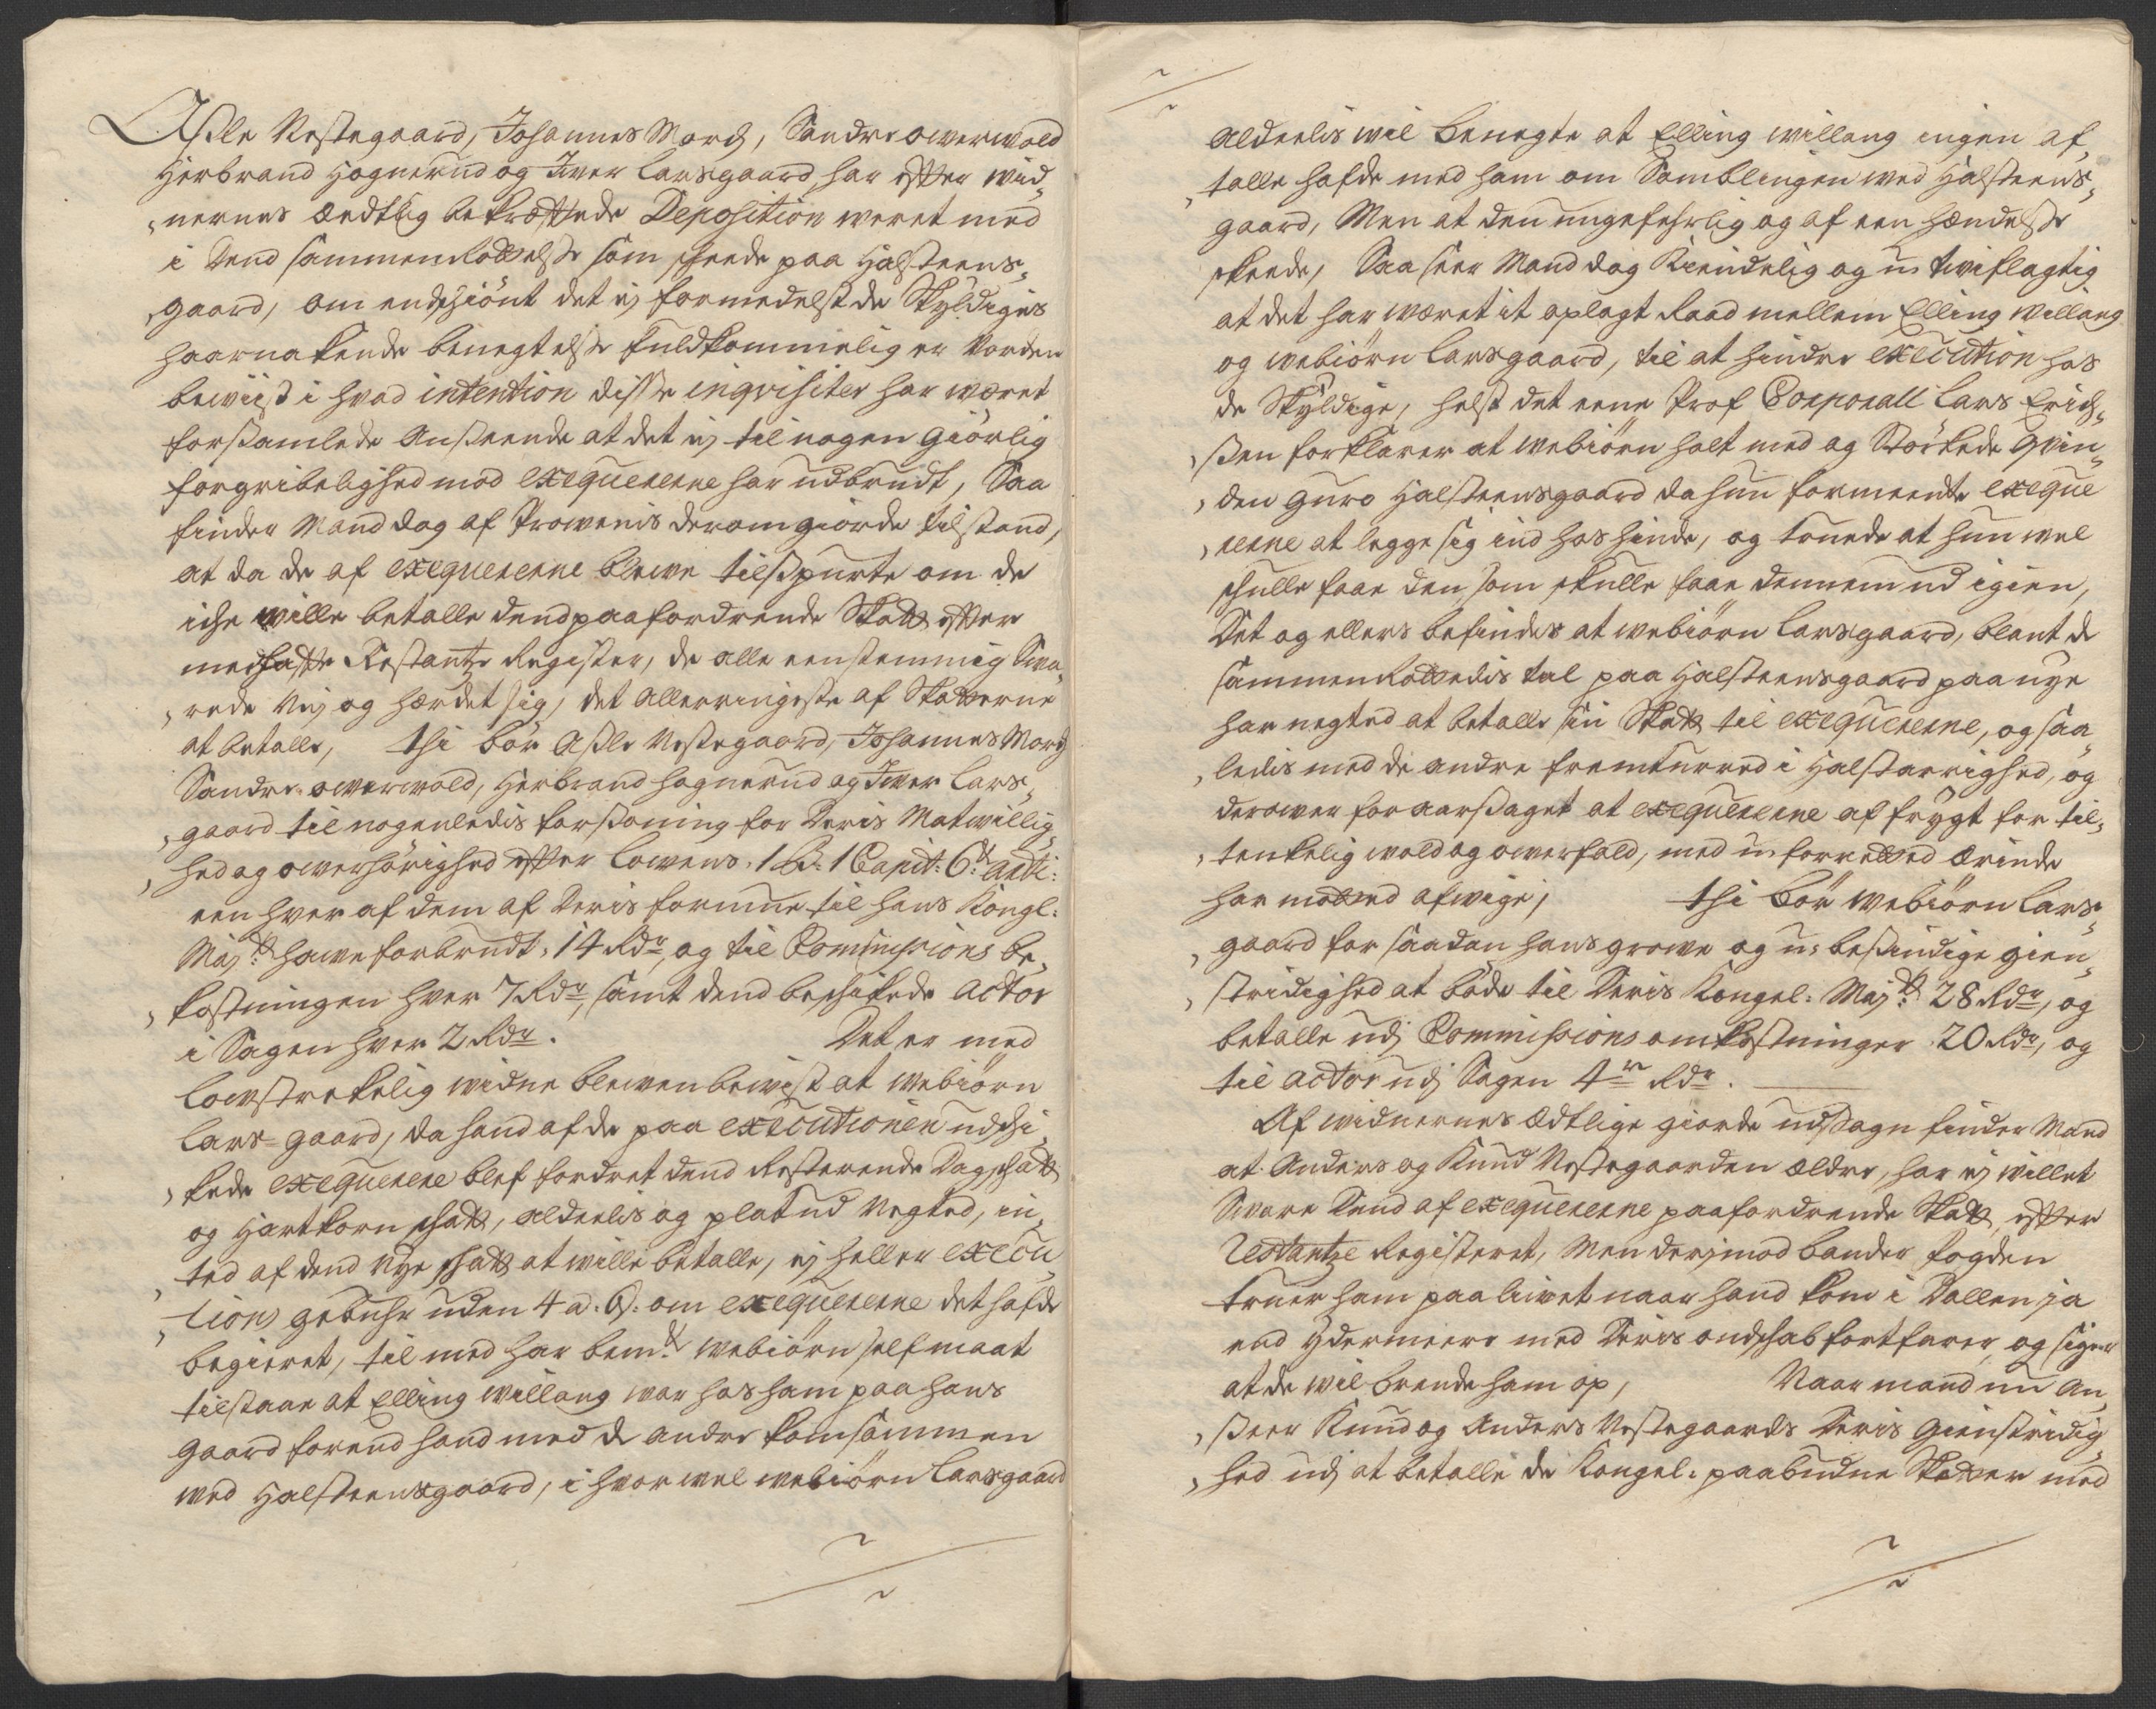 Aslle Vestegaard, Johannes Mørch, Sandre owerwold
Herbrand Hognerud og Iwer Larsgaard har efter wid„
„nernes Eedtlig bekræftede Deposition weret med
i dend sammenRottelse som skeede paa Halsteens„
„gaard, om endskiönt det ej formedelst de Skyldiges
haarnakende benegtelse fuldkommelig er Vorden
beviist i hvad intention disse inqvisiter har været
forsamlede Anseende at det ej til nogen Giörlig
forgribelighed mod exequererne har udbrudt, Saa
finder Mand dog af Prowenis derom giorde tilstand,
at da de af exequererne blewe tilspurte om de
iche wille betalle dend paafordrende Skatt efter
medhafte Restantze Register, de alle eenstemmig Swa„
„rede Nej og hærdet sig, det allerringeste af Skatterne
at betalle, thi bör Aslle Vestegaard, Johannes Mørch
Sandre owerwold, Herbrand Hognerud og Iwer Lars„
„gaard til nogenledis forsoning for Deris Motwillig„
„hed og owerhörighed efter Lowens 1 B: 1 Capit: 6te arti:
een hver af dem af Deris formue til hans Kongl:
Maj:tt hawe forbrudt 14 Rdr, og til Commissions be„
„kostningen hver 7 Rdr, samt dend beskikede Actor
i Sagen hver 2 Rdr. Det er med
lowstrekelig widne blewen bewist at Webiörn
Lars-gaard, da hand af de paa executionen udski„
„kede exequerere blef fordret dend Resterende Dagskatt
og Hartkorn skatt, alderlis og plat ud Negted, in„
„ted af dend Nye skatt at wille betalle, ej heller execu„
„tions gebuhr uden 4 a. 6 s: om exequererne det hafde
begieret, til med har bemt: Webiörn self maat
tilstaae at Elling Willang war hos ham paa hans
Gaard forend hand med de andre kom sammen
wed Halsteensgaard, i hvor wel Webiörn Larsgaard
alderlis wil benegte at Elling Willang ingen af„
„talle hafde med ham om Samblingen wed Halsteens„
gaard, Men at den ungefehrlig og af een hændelse
skeede, Saa seer Mand dog Kiendelig og u-twiflagtig
at det har wæret it oplagt Raad mellem Elling Willang
og Webiörn Larsgaard, til at hindre execution hos
de Skyldige, helst det eene Prof Corporall Lars Erich„
„sen forklarer at Webiörn holt med og Störkede Qvin„
„den Guro Halsteensgaard da hun formeente exeque
„rerne at legge sig ind hos hinde, og truede at hun wel
skulle faae den som skulle faae dennem ud igien,
Det og ellers befindes at Webiörn Larsgaard, blant de
sammenRottedis tal paa Halsteensgaard paa nye
har negted at betalle sin Skatt til exequererne, og saa„
„ledis med de andre fremturred i Halstarrighed, og
derower foraarsaget at exequererne af frygt for til„
„tenkelig wold og owerfald, med u-forretted Ærinde
har motted afwige, thi bör Webiörn Lars„
„gaard for saadan hans growe og u-besindige gien„
„stridighed at böde til Deris Kongel: Maj:tt 28 Rdr, og
betalle udj Commissions omkostninger 20 Rdr, og
til Actor udj Sagen 4re Rdr.
Af widnernes Edtlige giorde udsagn finder Mand
at Anders og Knud Vestegaarden ældre, har ej willet
Sware Dend af exequererne paafordrende Skatt, efter
Restantze Registeret, Men derjmod bander fogden
truer ham paa liwet naar hand kom i Dallen ja
end ydermeere med Deris ondskab fortfarer, og siger
at de wil brende ham op, Naar mand nu An„
„seer Knud og Anders Vestegaards Deris Gienstridig„
„hed udj at betalle de Kongel: paabudne Skatter med